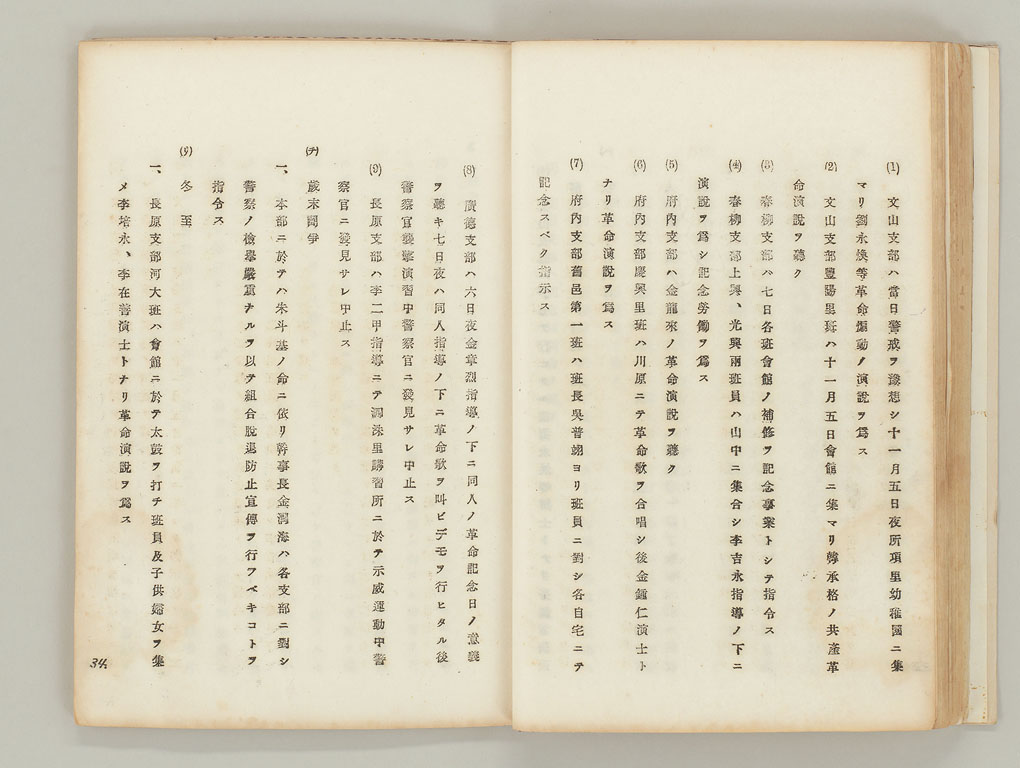 (1) 文山支部ハ當日警戒ヲ豫想シ十一月五日夜所項里幼稚園ニ集
マリ劉永煥等革命煽動ノ演説ヲ爲ス
(2) 文山支部豐陽里班ハ十一月五日會館ニ集マリ韓承格ノ共産革
命演説ヲ聽ク
(3) 春柳支部ハ七日各班會館ノ補修ヲ記念事業トシテ指令ス
(4) 春柳支部上興、光興兩班員ハ山中ニ集合シ李吉永指導ノ下ニ
演説ヲ爲シ記念勞働ヲ爲ス
(5) 府内支部ハ金龍來ノ革命演説ヲ聽ク
(6) 府内支部慶興里班ハ川原ニテ革命歌ヲ合唱シ後金鍾仁演士ト
ナリ革命演説ヲ爲ス
(7) 府内支部舊邑第一班ハ班長吳普翊ヨリ班員ニ對シ各自宅ニテ
記念スベク指示ス
(8) 廣德支部ハ六日夜金章烈指導ノ下ニ同人ノ革命記念日ノ意義
ヲ聽キ七日夜ハ同人指導ノ下ニ革命歌ヲ叫ビデモヲ行ヒタル後
警察官襲擊演習中警察官ニ發見サレ中止ス
(9) 長原支部ハ李二甲指導ニテ洞洙里講習所ニ於テ示威運動中警
察官ニ發見サレ中止ス
(チ) 歲末鬪爭
一、本部ニ於テハ朱斗基ノ命ニ依リ幹事長金洞海ハ各支部ニ對シ
警察ノ檢擧嚴重ナルヲ以テ組合脫退防止宣傳ヲ行フベキコトヲ
指令ス
(リ) 冬至
一、長原支部河大班ハ會館ニ於テ太鼓ヲ打チ班員及子供婦女ヲ集
メ李培永、李在善演士トナリ革命演説ヲ爲ス
34